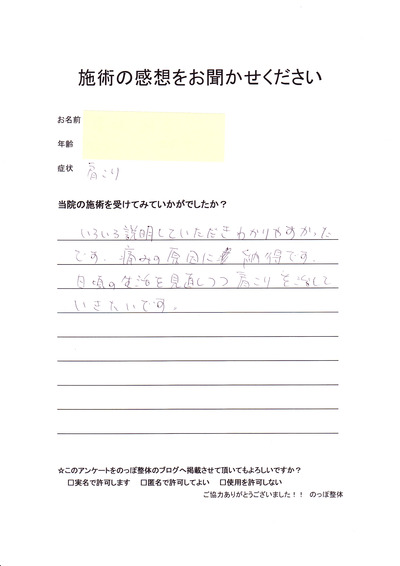 施術の感想をお聞かせください
お名前
年齢
症状 肩こり
当院の施術を受けてみていかがでしたか？
いろいろ説明していただきわかりやすかった
です。痛みの原因に納得です。
日頃の生活を見直しつつ肩こりを治して
いきたいです。
☆このアンケートをのっぽ整体のブログへ掲載させて頂いてもよろしいですか？
□実名で許可します □匿名で許可してよい □使用を許可しない
ご協力ありがとうございました！！ のっぽ整体